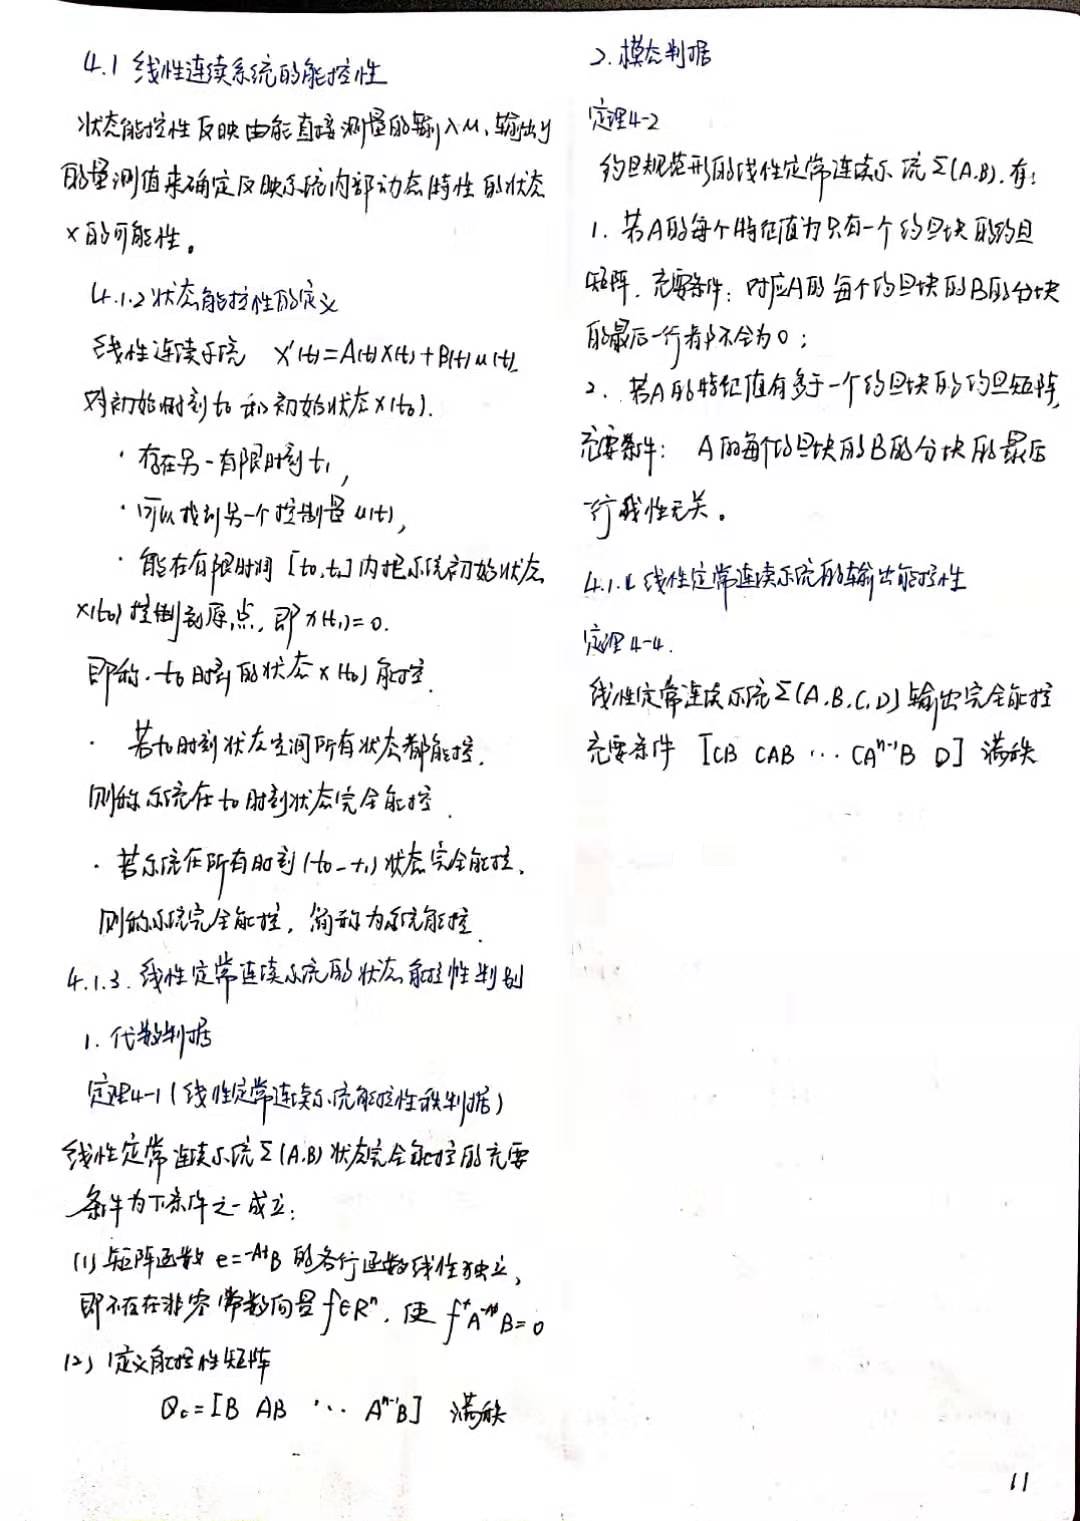 4.1 线性连续系统的能控性
状态能控性反映由能直接测量的输入u、输出y
的量测值来确定反映系统内部动态特性的状态
x的可能性。
4.1.2 状态能控性的定义
线性连续系统 x'(t)=A(t)x(t)+B(t)u(t).
对初始时刻t₀和初始状态x(t₀).
· 存在另一有限时刻t₁,
· 可以找到另一个控制量u(t),
· 能在有限时间[t₀,t₁]内把系统初始状态
x(t₀)控制到原点,即x(t₁)=0.
即称.t₀时刻的状态x(t₀)能控.
· 若t₀时刻状态空间所有状态都能控.
则称系统在t₀时刻状态完全能控.
· 若系统在所有时刻(t₀-t₁)状态完全能控.
则称系统完全能控,简称为系统能控.
4.1.3.线性定常连续系统的状态能控性判别
1.代数判据
定理4-1(线性定常连续系统能控性秩判据)
线性定常连续系统Σ(A.B)状态完全能控的充要
条件为下条件之一成立:
(1)矩阵函数e=⁻ᴬᵗB的各行函数线性独立,
即不存在非零常数向量f∈Rⁿ,使fᵗA⁻ᴬᵗB=0
(2)定义能控性矩阵
Qc=[B AB ··· Aⁿ⁻¹B] 满秩
2.模态判据
定理4-2
约旦规范形的线性定常连续系统Σ(A.B).有:
1.若A的每个特征值为只有一个约旦块的约旦
矩阵.充要条件:对应A的每个约旦块的B的分块
的最后一行都不全为0;
2.若A的特征值有多于一个约旦块的约旦矩阵,
充要条件: A的每个约旦块的B的分块的最后
一行线性无关。
线性定常连续系统的输出能控性
定理4-4.
线性定常连续系统Σ(A.B.C.D)输出完全能控
充要条件 [CB CAB ··· CAⁿ⁻¹B D] 满秩
11